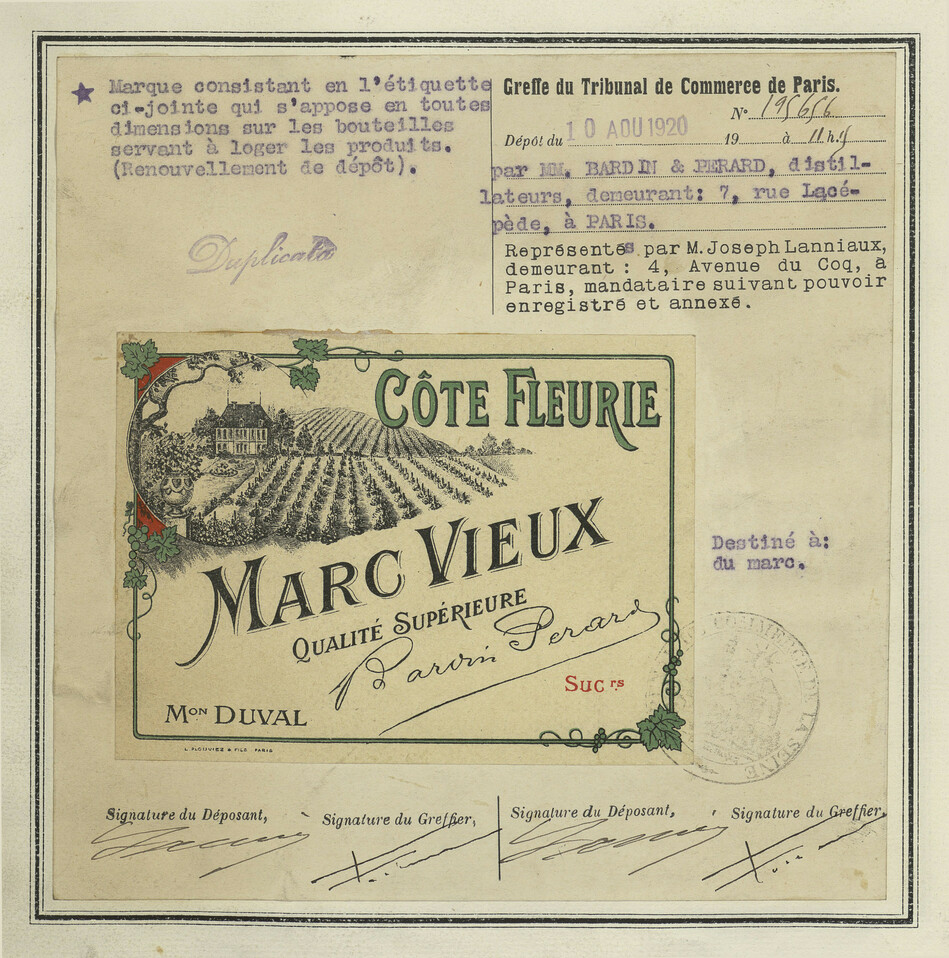 ★ Marque consistant en l'étiquette
ci-jointe qui s'appose en toutes
dimensions sur les bouteilles
servant à loger les produits.
(Renouvellement de dépôt).
Duplicata
Greffe du Tribunal de Commerce de Paris.
N° 195656
Dépôt du 10 AOU 1920 19 à 11 h.
par MM. BARDIN & PERARD, distil-
lateurs, demeurant: 7, rue Lacé-
pède, à PARIS.
Représentés par M. Joseph Lanniaux,
demeurant : 4, Avenue du Coq, à
Paris, mandataire suivant pouvoir
enregistré et annexé.
CÔTE FLEURIE
MARC VIEUX
QUALITÉ SUPÉRIEURE
Bardin Perard
Sucrs
Mon DUVAL
L. PLOUVIEZ & FILS PARIS
Destiné à:
du marc.
COMMERCE DE LA SEINE
Signature du Déposant,
Signature du Greffier,
Signature du Déposant,
Signature du Greffier,